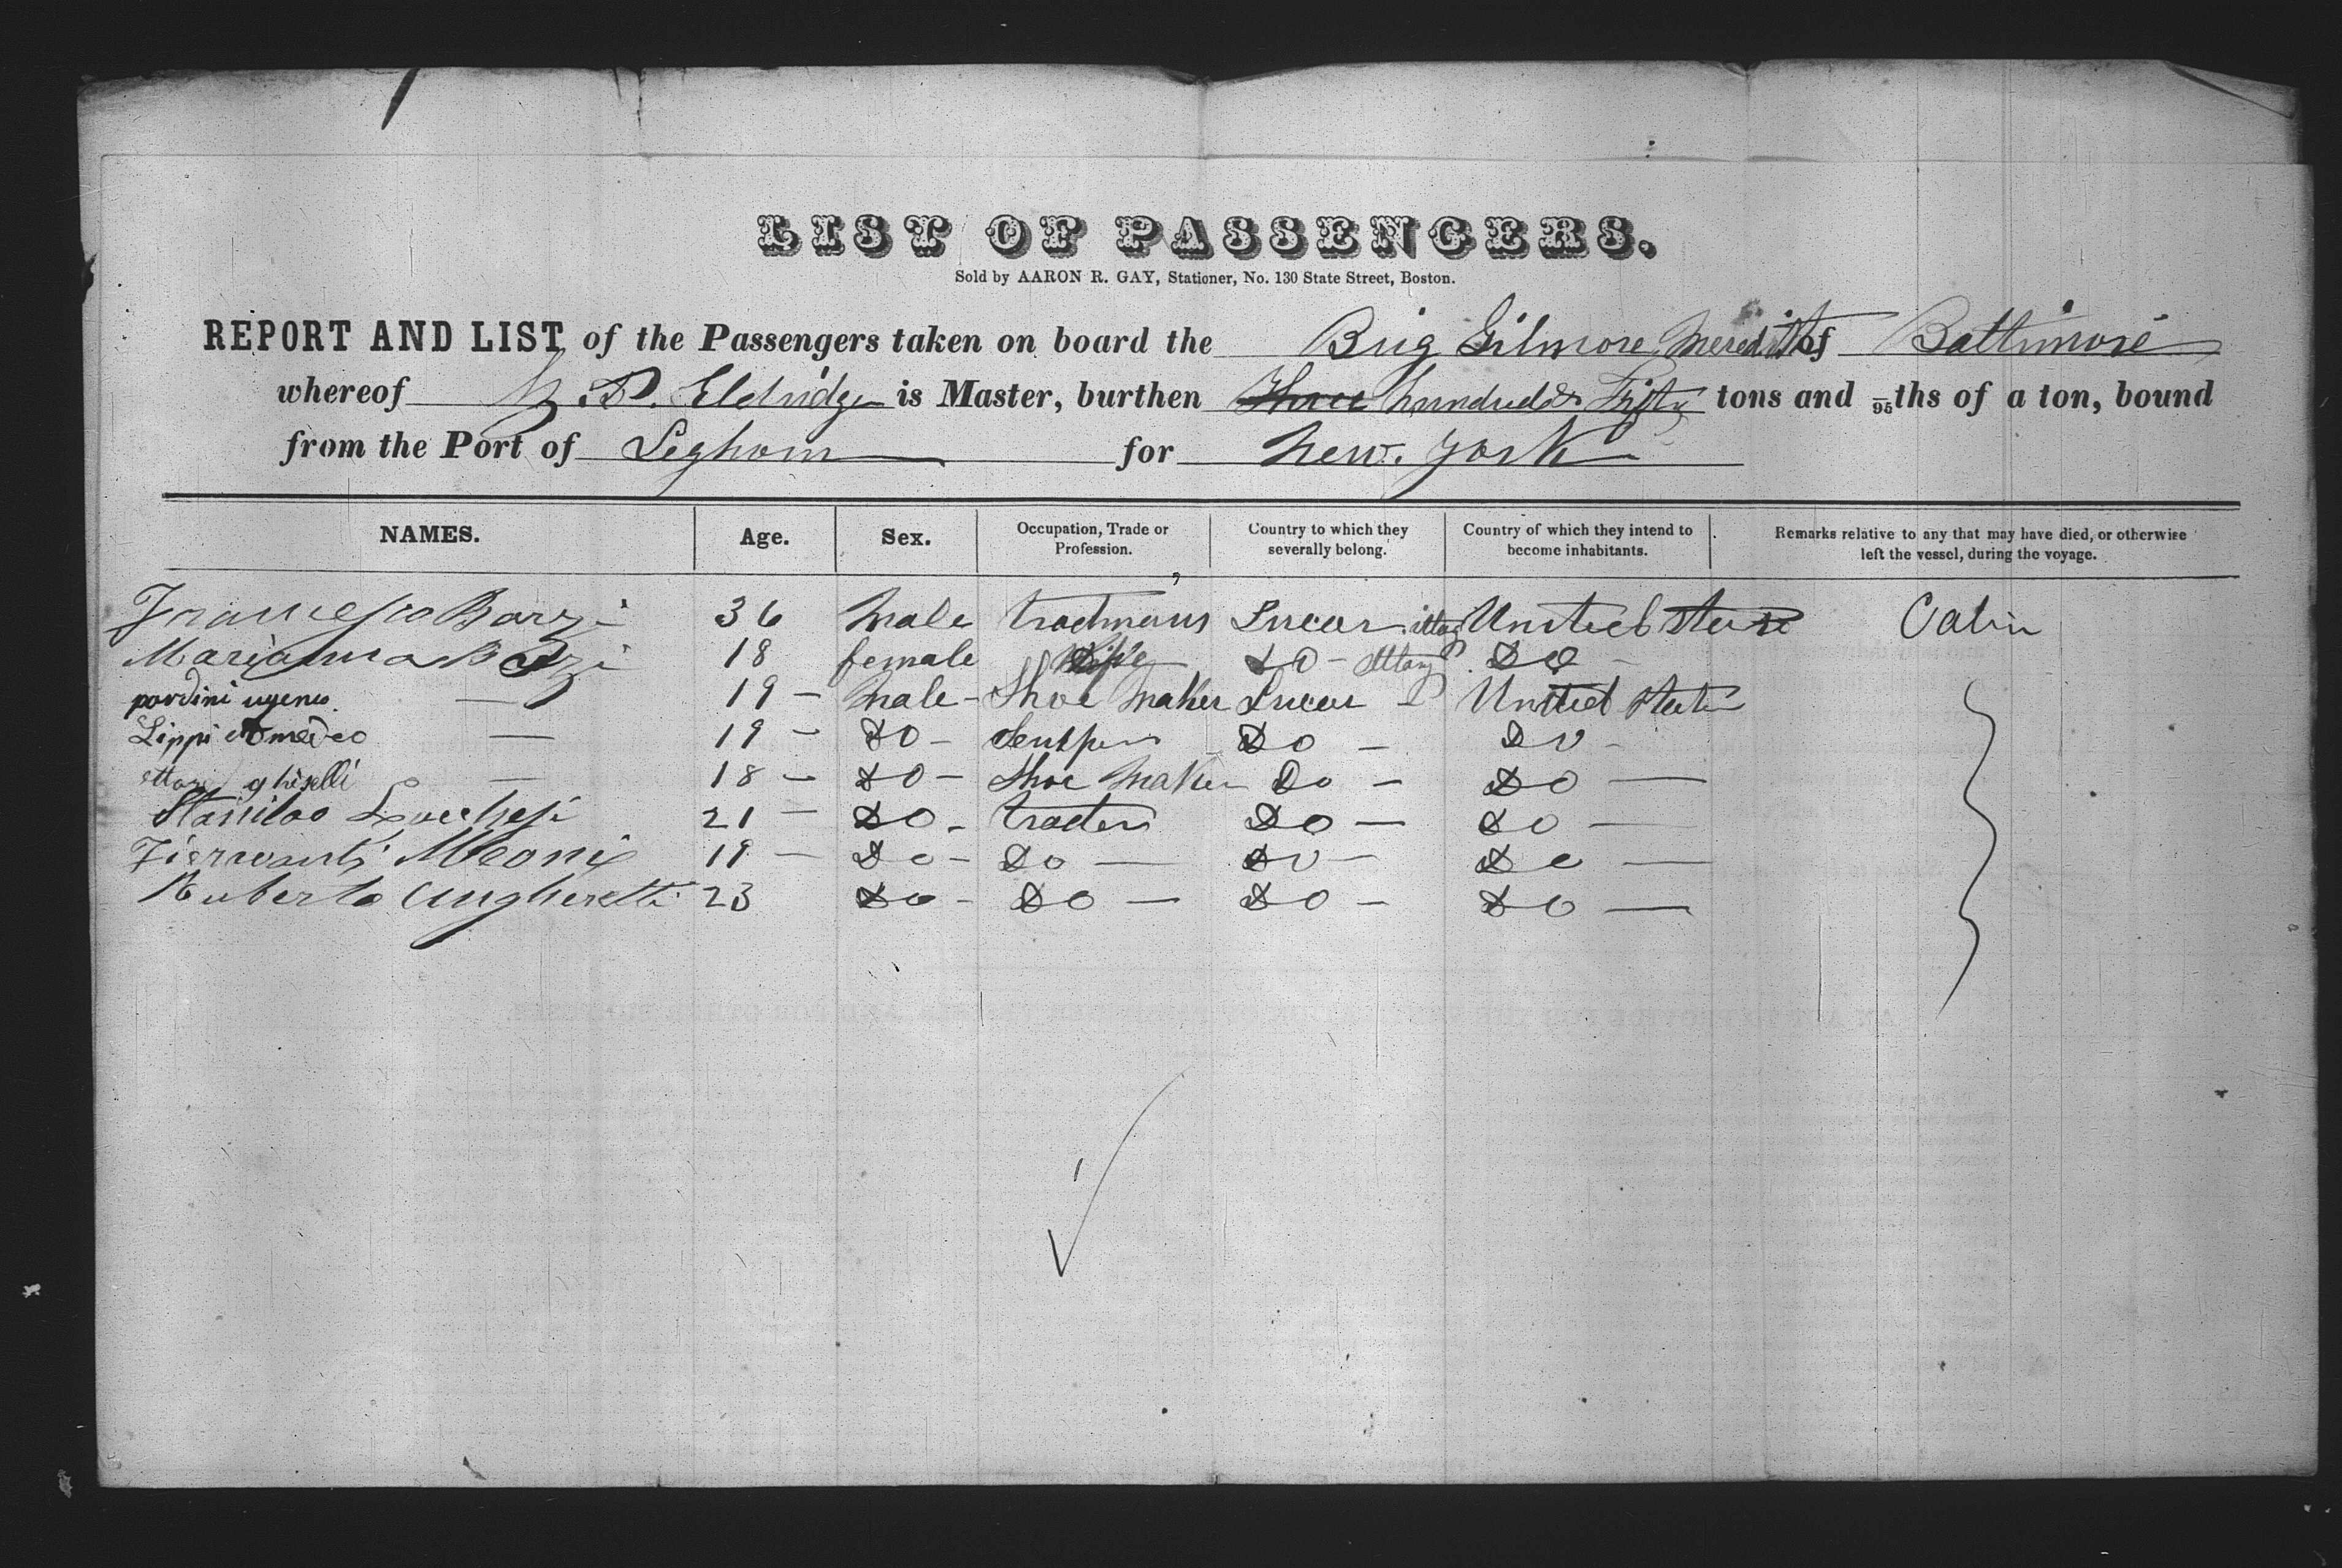 LIST OF PASSENGERS.
Sold by AARON R. GAY, Stationer, No. 130 State Street, Boston.
REPORT AND LIST of the Passengers taken on board the Brig Gilmore Meredith of Baltimore
whereof D. Eldridge is Master, burthen Three hundred & Fifty tons and /95ths of a ton, bound
from the Port of Leghorn for New. York
NAMES. Age. Sex. Occupation, Trade or Profession. Country to which they severally belong. Country of which they intend to become inhabitants. Remarks relative to any that may have died, or otherwise left the vessel, during the voyage.
Francesco Barzi 36 Male tradmans Luccar. Uniteb Cabin
Marianna B 18 female Wife Do - Do -
pardini ugeneo. — 19 - Male - Shoe Maker Luccar United
Lippi Amedeo — 19 - Do - Do - Do -
ghiselli — 18 - Do - Shoe Maker Do - Do —
Stanilao Lucchesi 21 - Do - traders Do — Do —
Meoni 19 - Do - Do — Do - Do —
Ruberto Angheretti 23 Do - Do — Do - Do —